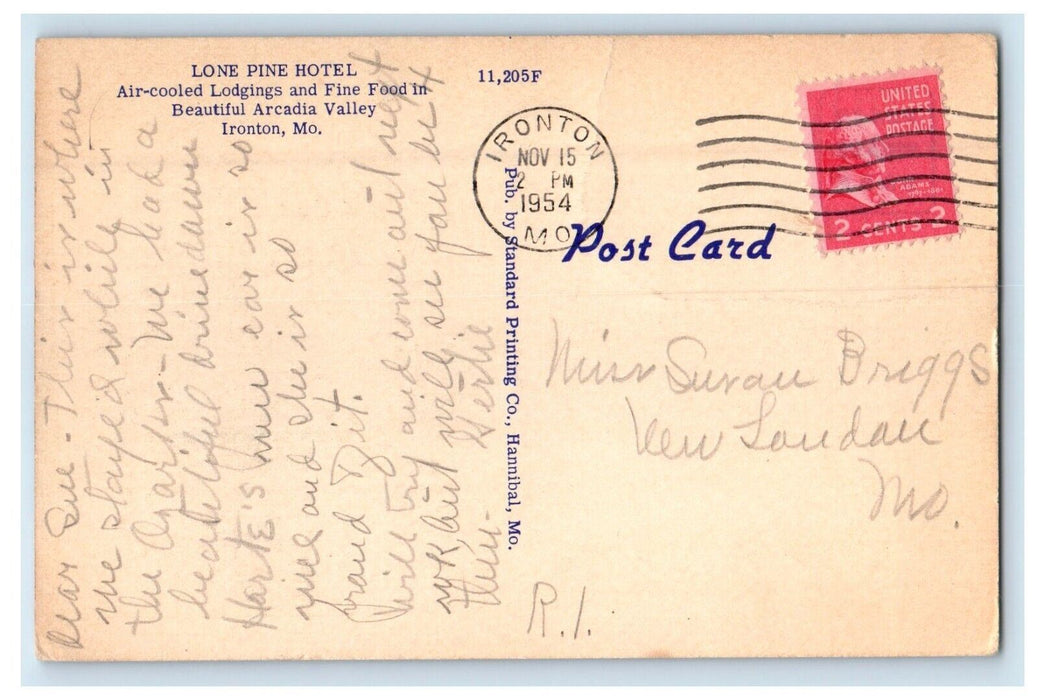 LONE PINE HOTEL
Air-cooled Lodgings and Fine Food in
Beautiful Arcadia Valley
Ironton, Mo.
11,205F
IRONTON
NOV 15
2 PM
1954
MO
UNITED
STATES
POSTAGE
ADAMS
1797-1801
2 CENTS 2
Post Card
Pub. by Standard Printing Co., Hannibal, Mo.
Dear Sue - This is where
we stayed while in
the Ozarks - We had a
beautiful drive down
Harte's new car is so
nice and she is so
proud of it.
Will try and come out next
wk, but will see you be4
then - Gertie
Miss Susan Briggs
New London
Mo.
R.1.